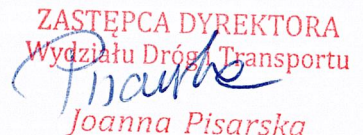 ZASTĘPCA DYREKTORA
Wydziału Dróg i Transportu
Pisarska
Joanna Pisarska